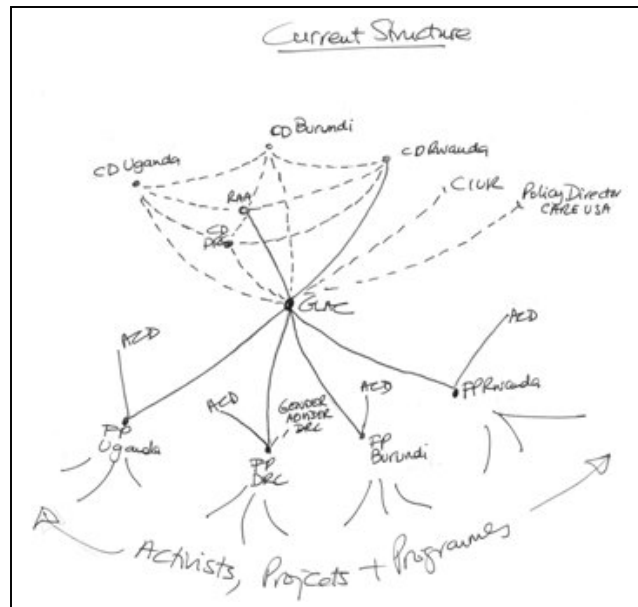 Current Structure
CD Burundi
CD Uganda
CD Rwanda
RAA
CIUK
Policy Director
CARE USA
CD
DRC
GLAC
ACD
ACD
ACD
GENDER
ADVISER
DRC
ACD
FP Rwanda
FP
Uganda
FP
DRC
FP
Burundi
Activists, Projects + Programmes